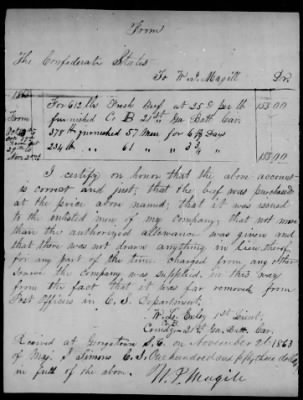 Form
The Confederate States
To W. J. Magill Dr.
1863
For 612 lbs Fresh Beef, at 25¢ per lb 153.00
From furnished Co B 21st Ga Batt Cav.
378 lb furnished 57 Men for 6 Days
Nov 2nd 234 lb " 61 " " 3 " 153.00
I certify on honor that the above account
is correct and just, that the beef was purchased
at the price above named, that it was issued
to the enlisted men of my company, that not more
than the authorized allowance was given and
that there was not drawn anything in lieu thereof
for any part of the time charged from any other
source the company was supplied in this way
from the fact that it was far removed from
Post Officers in C. S. Department.
1st Lieut.
Co B
Comdg 21st Ga. Batt. Cav.
Received at Georgetown S.C. on November 2d 1863
of Maj. J Simons C.S. One hundred and fifty three dollars
in full of the above.
W. J. Magill